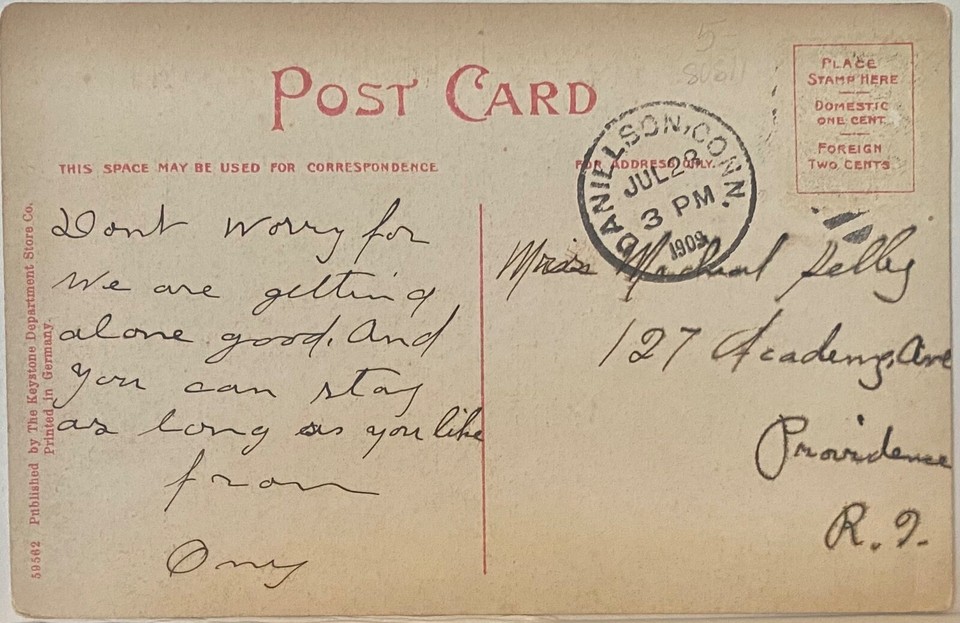 5
80811
POST CARD
PLACE
STAMP HERE
DOMESTIC
ONE CENT.
FOREIGN
TWO CENTS.
THIS SPACE MAY BE USED FOR CORRESPONDENCE
FOR ADDRESS ONLY.
DANIELSON, CONN.
JUL 28
3 PM
1909
Dont Worry for
We are getting
alone good. And
you can stay
as long as you like
from
127 Academy Ave
Providence
R. I.
59562 Published by The Keystone Department Store Co.
Printed in Germany.